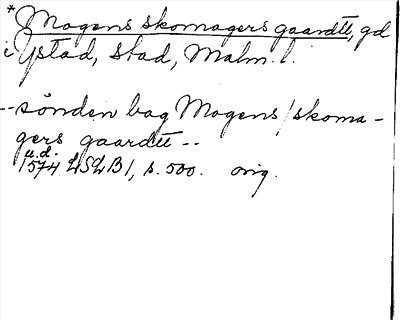 * Mogens skomagers gaardtt, gd
i Ystad, stad, Malm. l.
-- sönden bag Mogens/skoma-
gers gaardtt --
u.d.
1574 LSLB 1, s. 500. orig.